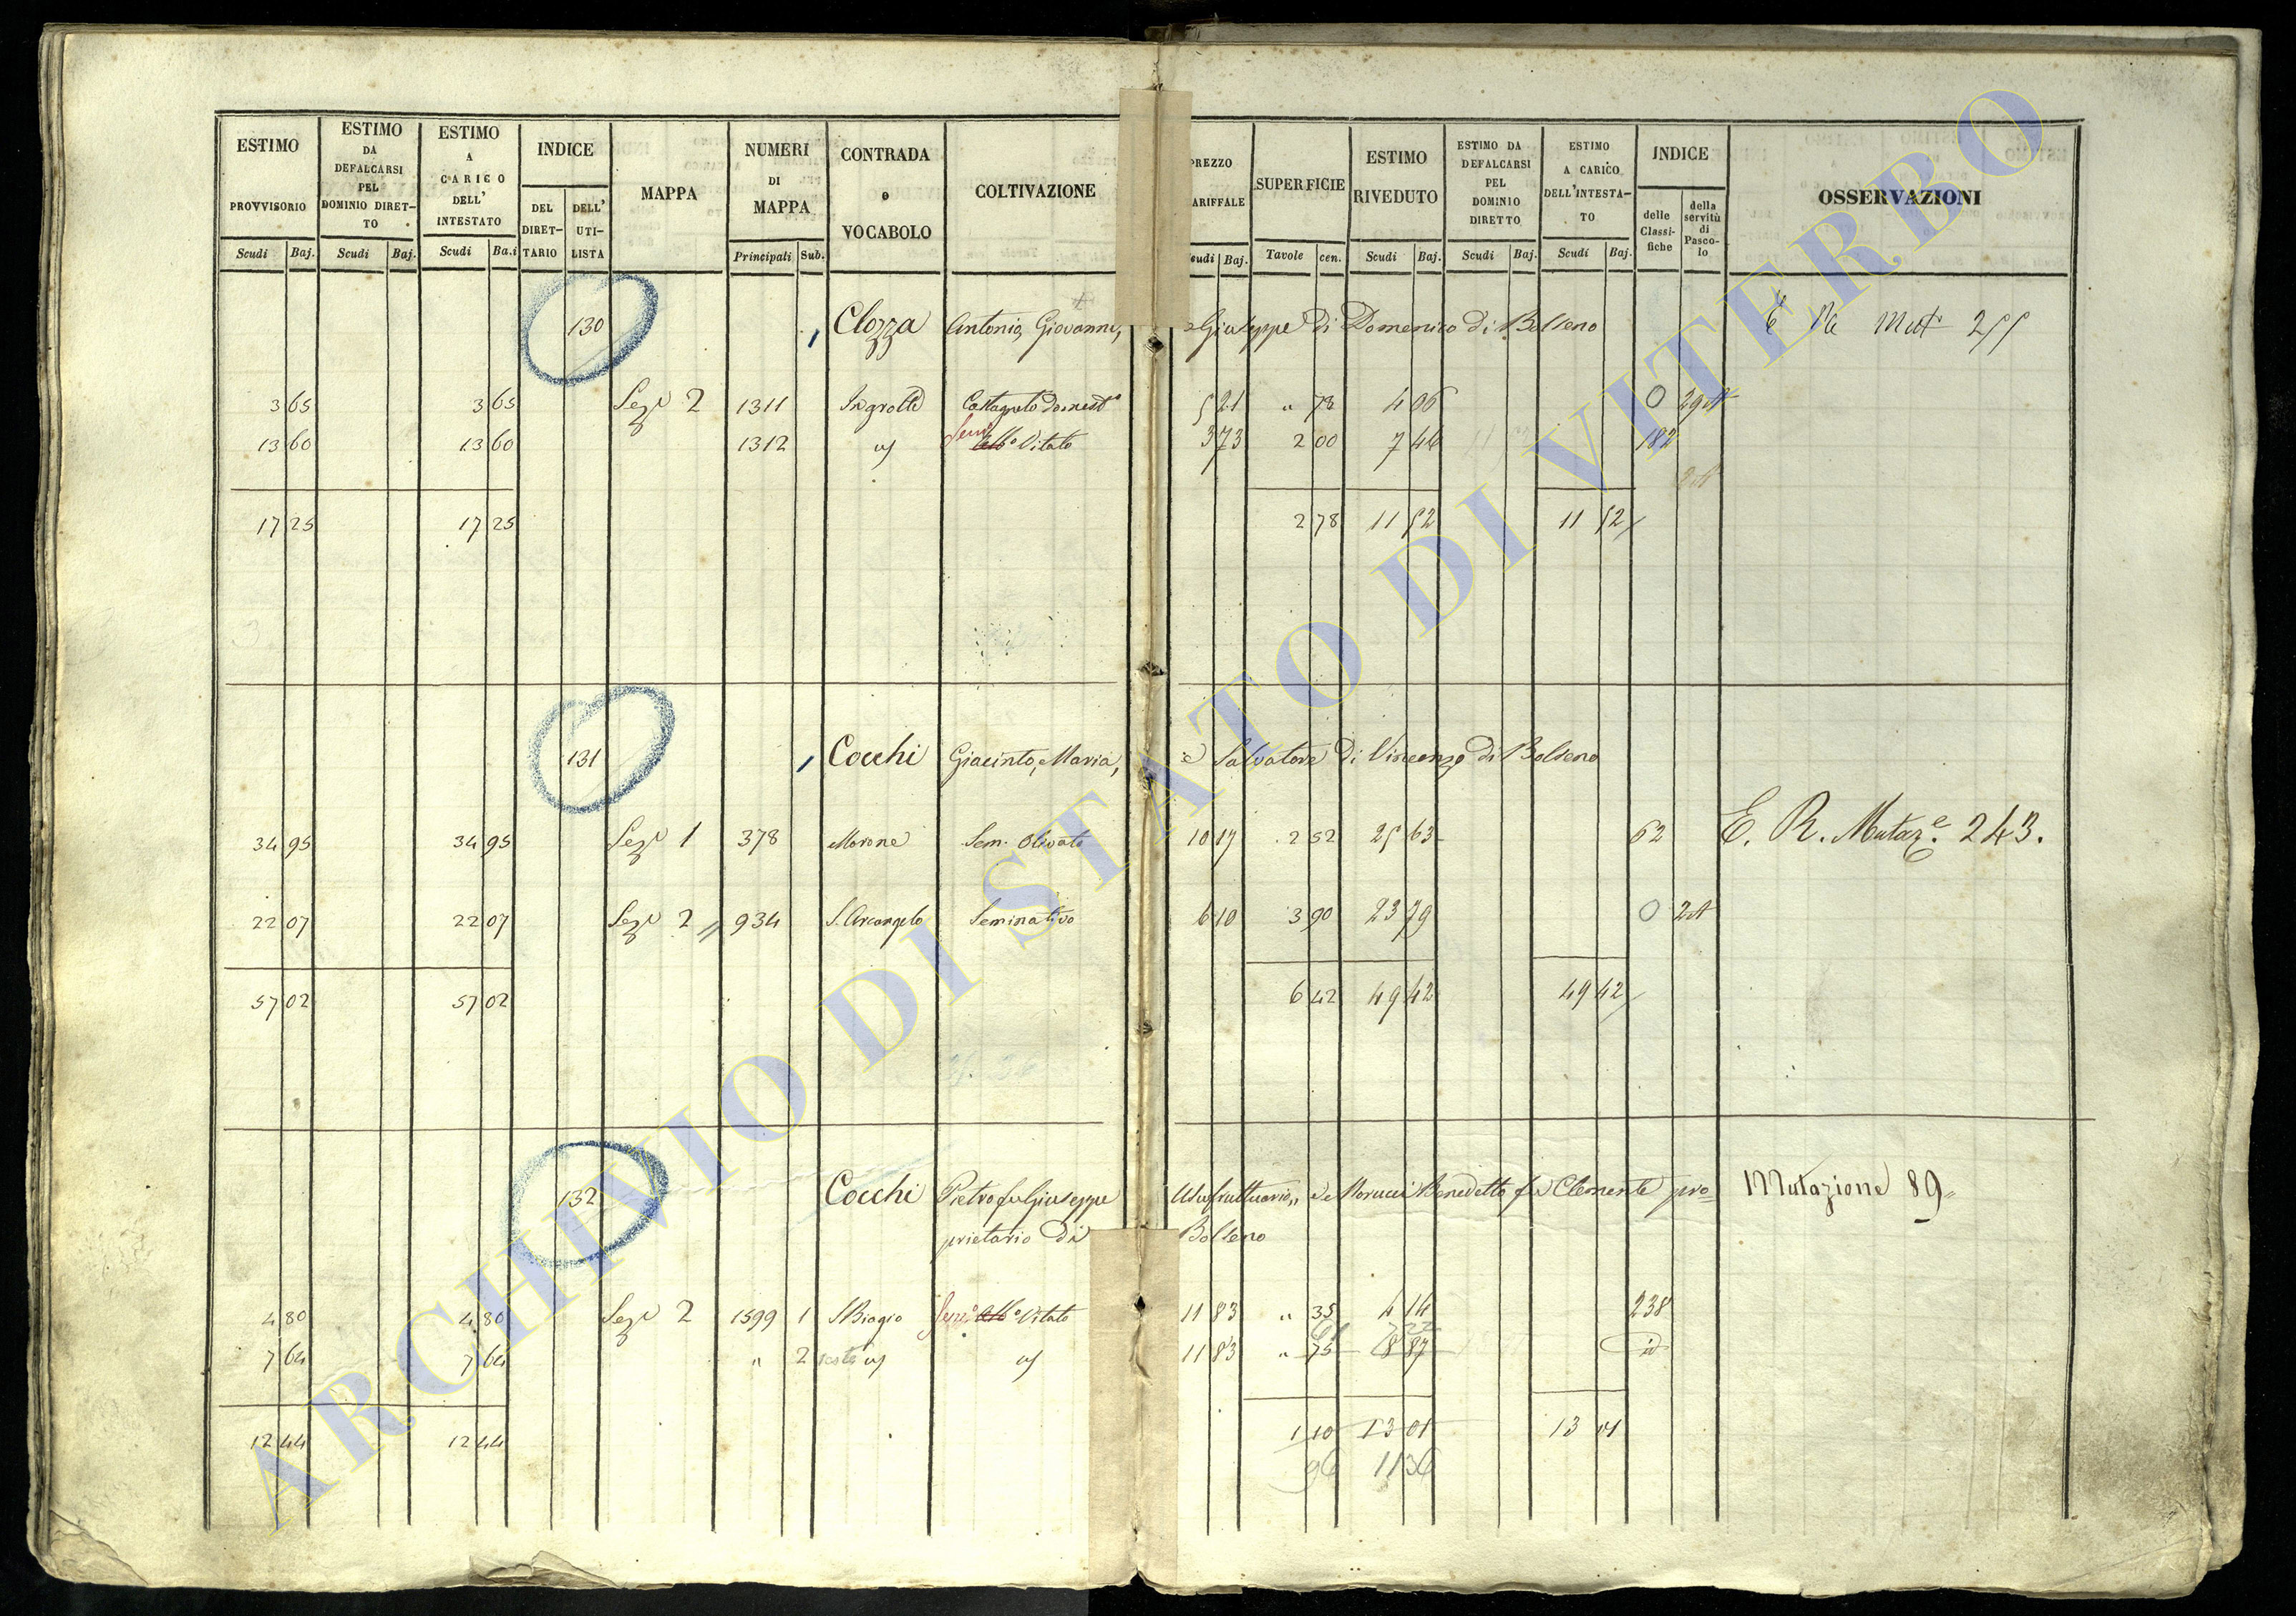 ESTIMO PROVVISORIO Scudi Baj. ESTIMO DA DEFALCARSI PEL DOMINIO DIRET-TO Scudi Baj. ESTIMO A CARICO DELL' INTESTATO Scudi Ba.i INDICE DEL DIRET-TARIO DELL' UTI-LISTA MAPPA NUMERI DI MAPPA Principali Sub. CONTRADA o VOCABOLO COLTIVAZIONE PREZZO TARIFFALE Scudi Baj. SUPERFICIE Tavole cen. ESTIMO RIVEDUTO Scudi Baj. ESTIMO DA DEFALCARSI PEL DOMINIO DIRETTO Scudi Baj. ESTIMO A CARICO DELL'INTESTA-TO Scudi Baj. INDICE delle Classi-fiche della servitù di Pasco-lo OSSERVAZIONI
130 Clozza Antonio, Giovanni, e Giuseppe di Domenico di Bolseno E Re Mut 255
3 65 3 65 Sez.e 2 1311 Ingrotte Castagneto domest.o 5 21 " 78 4 06 0
13 60 13 60 1312 Vitato 3 73 2 00 7 46 182
17 25 17 25 2 78 11 52 11 52
131 Cocchi Giacinto, Maria, e Salvatore di Vincenzo di Bolseno
34 95 34 95 Sez.e 1 378 Morone Sem. Olivato 10 17 2 52 25 63 62 E. R. Mutaz.e 243.
22 07 22 07 Sez.e 2 934 S. Arcangelo Seminativo 6 10 3 90 23 79 0 2
57 02 57 02 6 42 49 42 49 42
132 Cocchi Pietro fu Giuseppe Usufruttuario, e Morucci Benedetto fu Clemente pro= Mutazione 89
prietario di Bolseno
4 80 4 80 Sez.e 2 1599 1 S. Biagio Vitato 11 83 " 35 4 14 238
7 64 7 64 " 2 11 83 " 75 8 87 id
12 44 12 44 1 10 13 01 13 01
96 11 36
ARCHIVIO DI STATO DI VITERBO